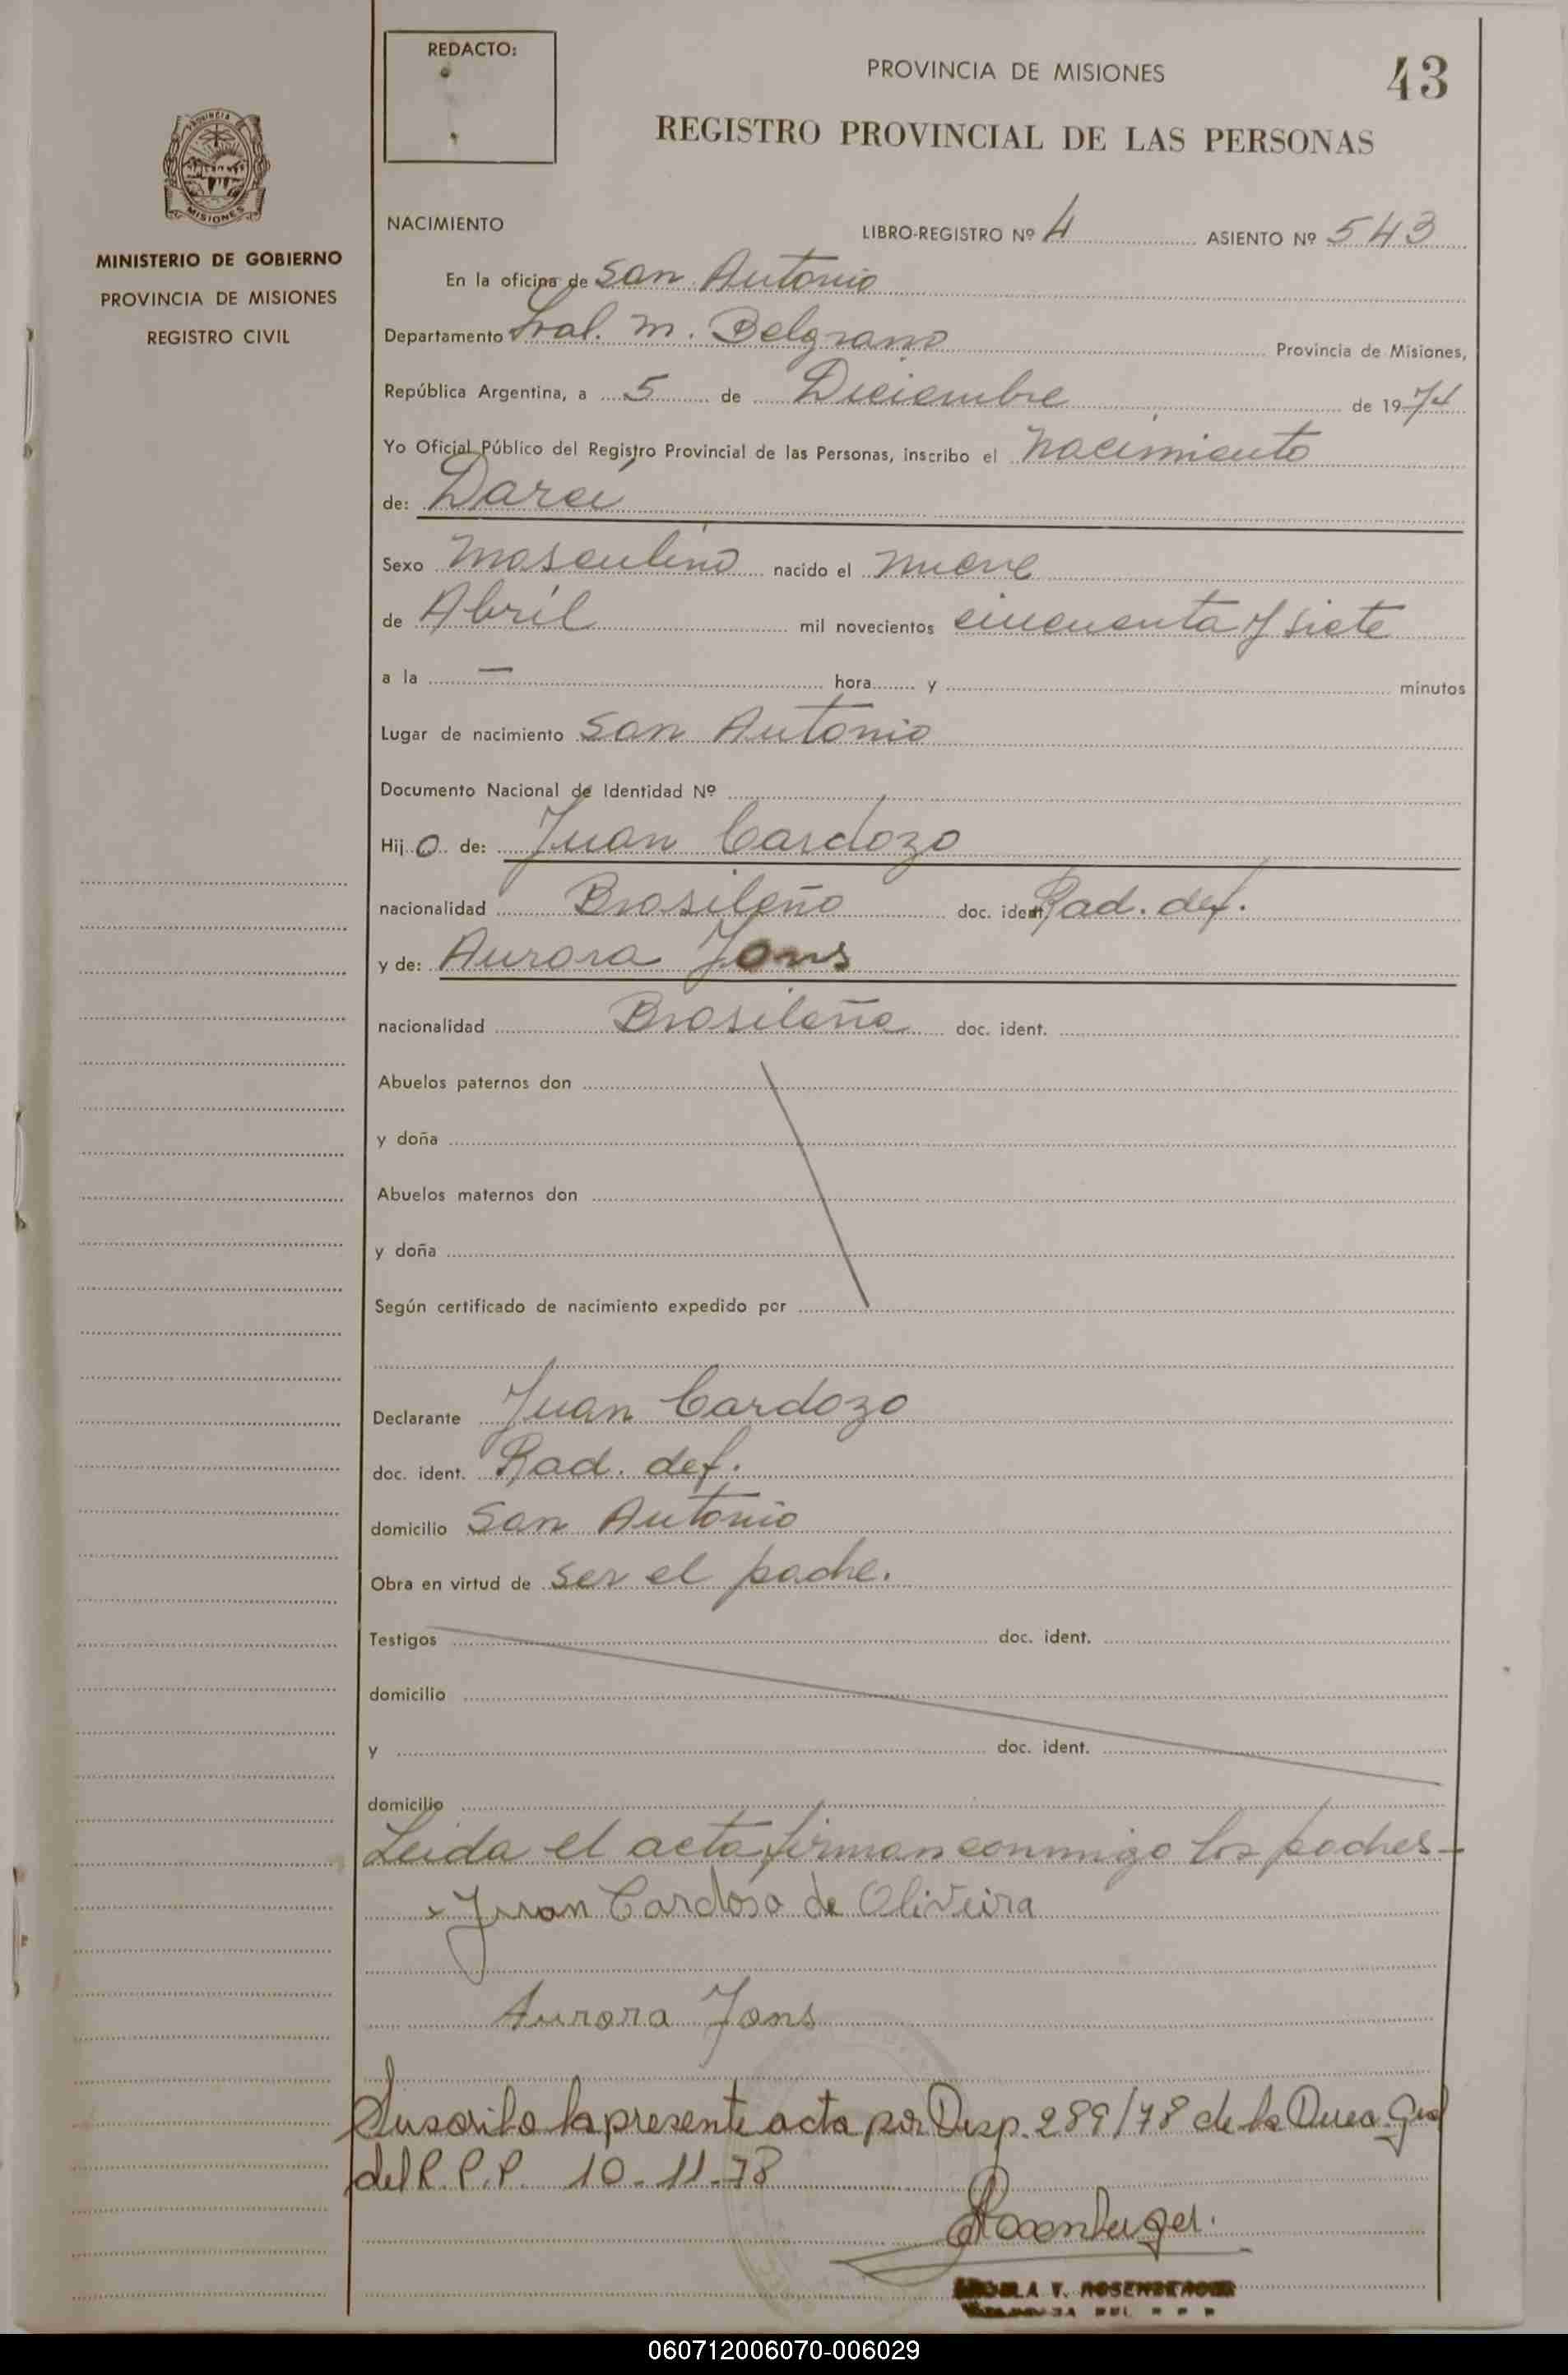 REDACTO:
PROVINCIA DE MISIONES
43
REGISTRO PROVINCIAL DE LAS PERSONAS
PROVINCIA DE
MISIONES
MINISTERIO DE GOBIERNO
PROVINCIA DE MISIONES
REGISTRO CIVIL
NACIMIENTO LIBRO-REGISTRO Nº 4 ASIENTO Nº 543
En la oficina de San Antonio
Departamento Gral. M. Belgrano Provincia de Misiones,
República Argentina, a 5 de Diciembre de 1974
Yo Oficial Público del Registro Provincial de las Personas, inscribo el nacimiento
de: Darci
Sexo masculino nacido el nueve
de Abril mil novecientos cincuenta y siete
a la — hora y minutos
Lugar de nacimiento San Antonio
Documento Nacional de Identidad Nº
Hijo de: Juan Cardozo
nacionalidad Brasileño doc. ident. Rad. def.
y de: Aurora Jons
nacionalidad Brasileña doc. ident.
Abuelos paternos don
y doña
Abuelos maternos don
y doña
Según certificado de nacimiento expedido por
Declarante Juan Cardozo
doc. ident. Rad. def.
domicilio San Antonio
Obra en virtud de ser el padre.
Testigos doc. ident.
domicilio
y doc. ident.
domicilio
Leida el acta firman conmigo los padres-
x Juan Cardoso de Oliveira
Aurora Jons
Suscribo la presente acta por Disp. 289/78 de la Direc. Gral
del R.P.P. 10-11-78
Rosenberger.
V. ROSENBERGER
060712006070-006029